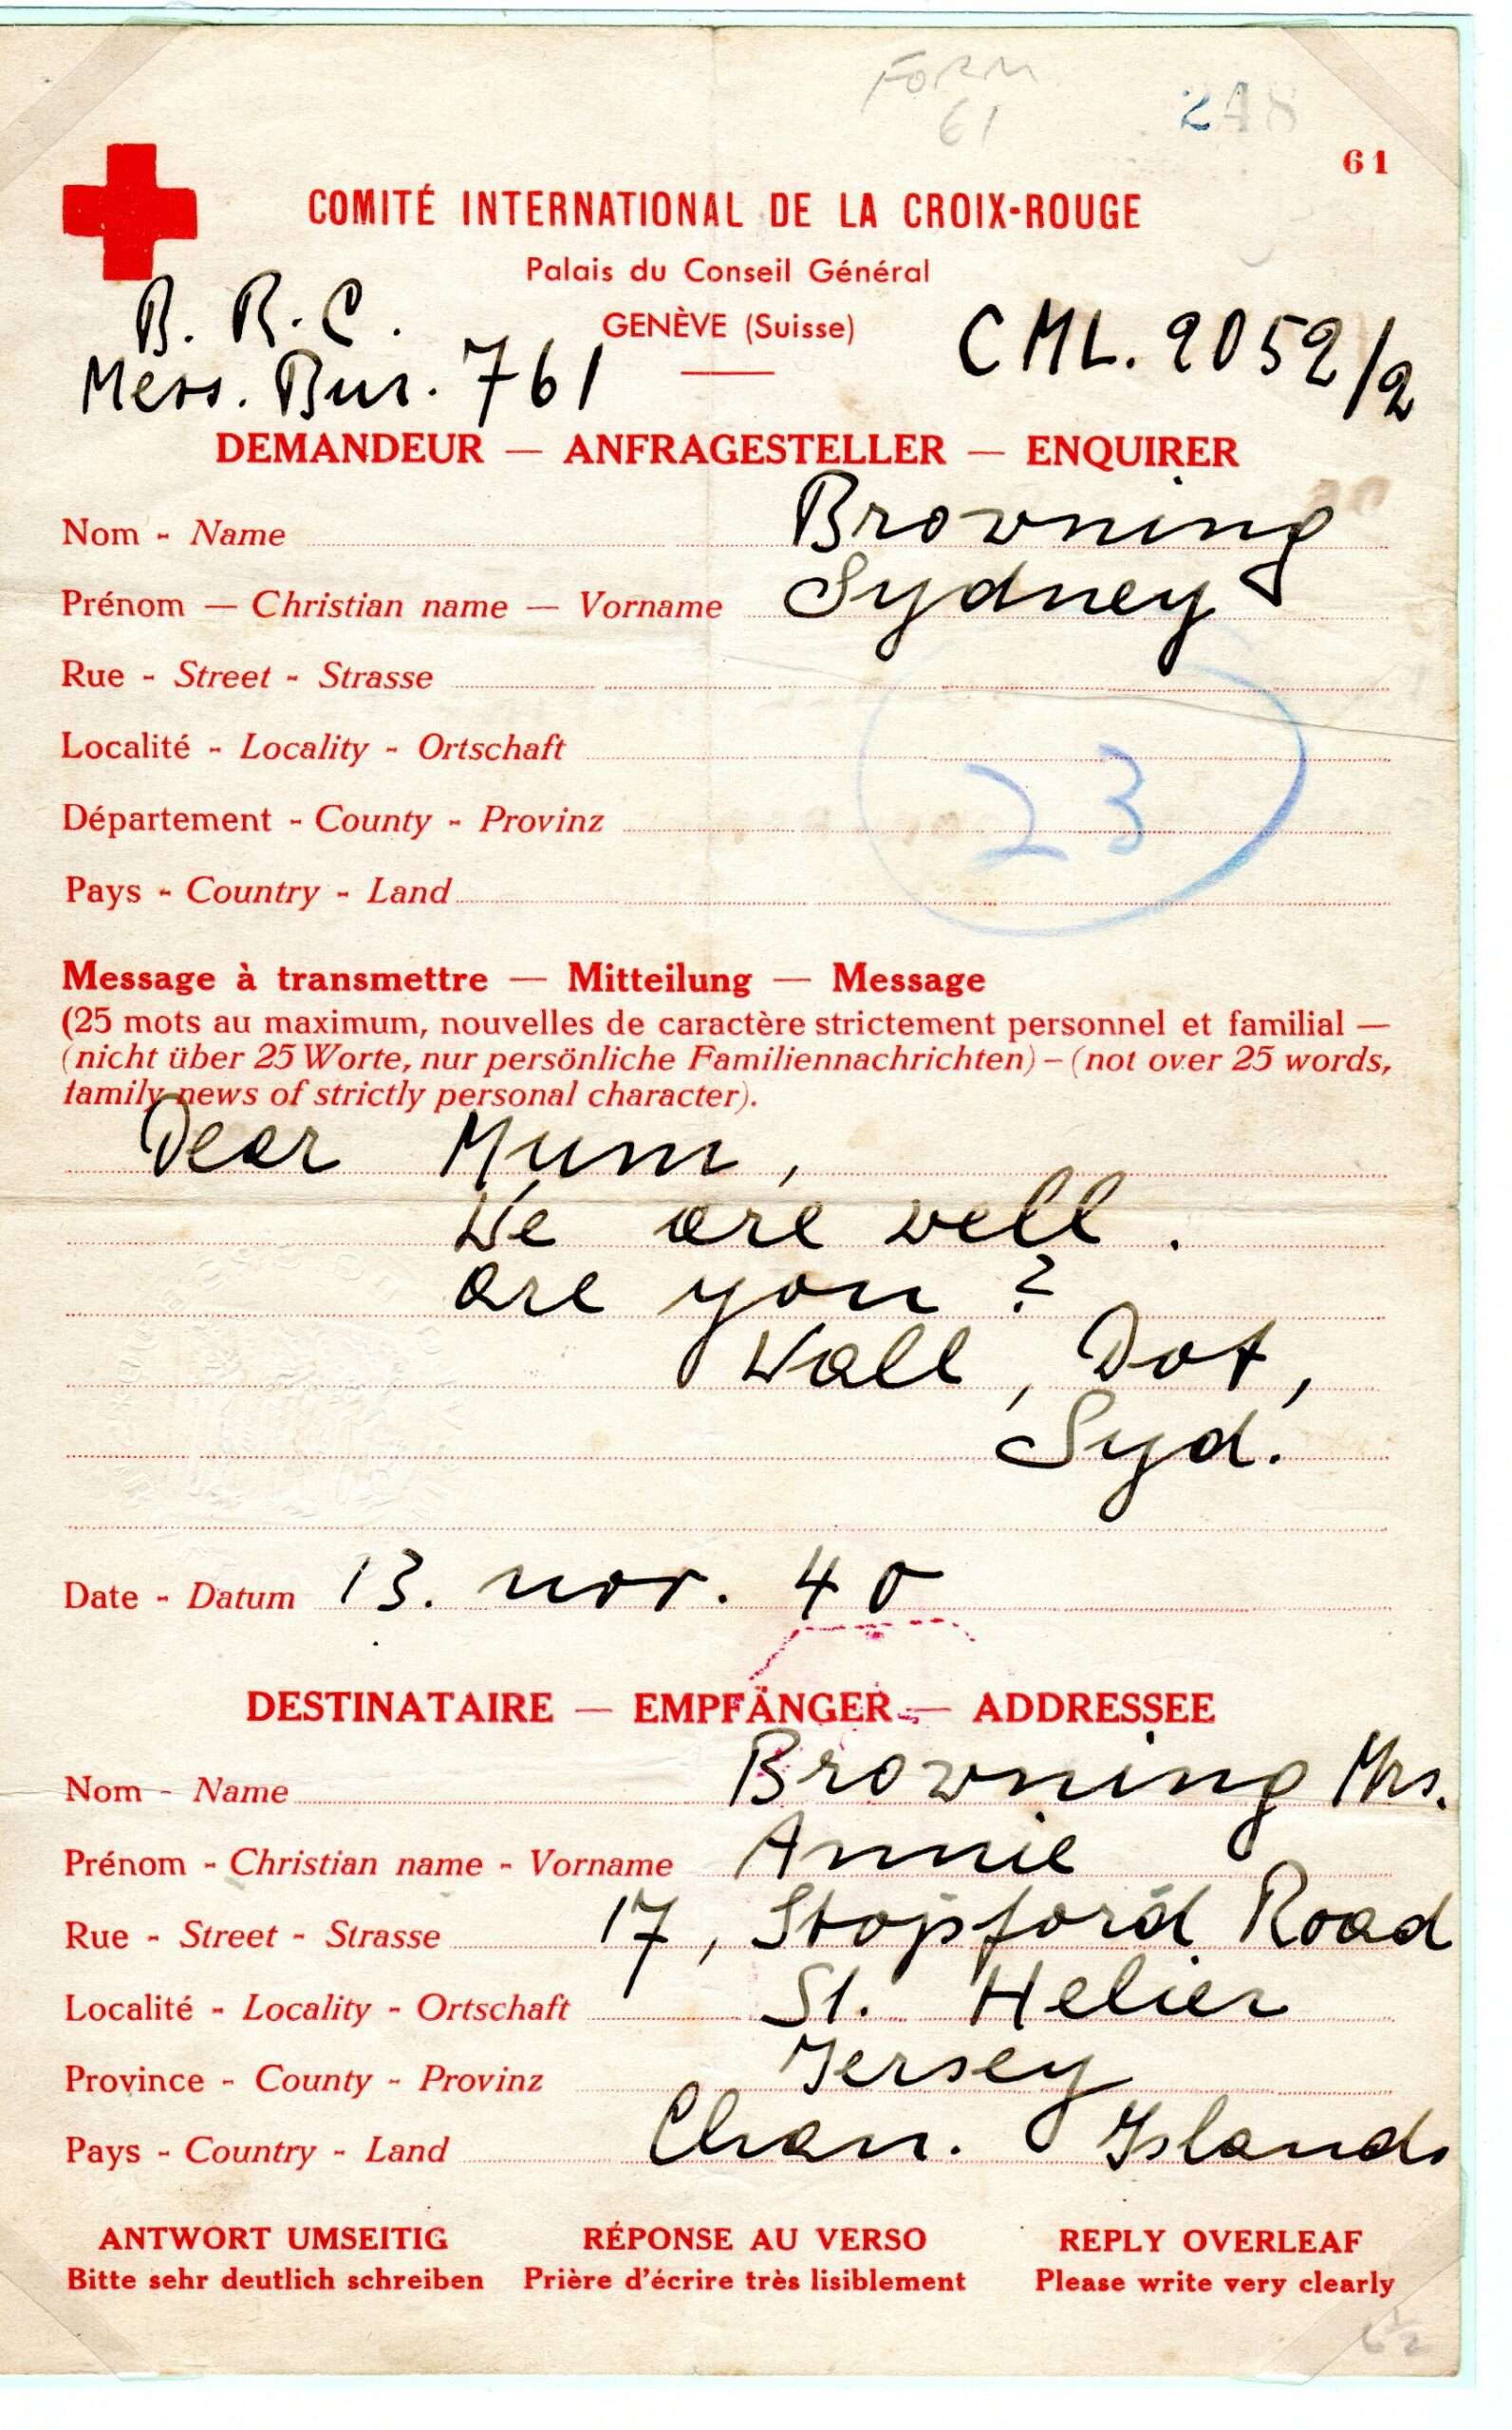 FORM
61
248
61
COMITÉ INTERNATIONAL DE LA CROIX-ROUGE
Palais du Conseil Général
GENÈVE (Suisse)
B. R. C.
Mess. Bur. 761
CML. 2052/2
DEMANDEUR — ANFRAGESTELLER — ENQUIRER
Nom - Name Browning
Prénom — Christian name — Vorname Sydney
Rue - Street - Strasse
Localité - Locality - Ortschaft
23
Département - County - Provinz
Pays - Country - Land
Message à transmettre — Mitteilung — Message
(25 mots au maximum, nouvelles de caractère strictement personnel et familial —
(nicht über 25 Worte, nur persönliche Familiennachrichten) – (not over 25 words,
family news of strictly personal character).
Dear Mum,
We are well.
are you?
Wall, Dot,
Syd.
Date - Datum 13. nov. 40
DESTINATAIRE — EMPFÄNGER — ADDRESSEE
Nom - Name Browning Mrs.
Prénom - Christian name - Vorname Annie
Rue - Street - Strasse 17, Stopford Road
Localité - Locality - Ortschaft St. Helier
Province - County - Provinz Jersey
Pays - Country - Land Chan. Islands
ANTWORT UMSEITIG RÉPONSE AU VERSO REPLY OVERLEAF
Bitte sehr deutlich schreiben Prière d'écrire très lisiblement Please write very clearly
6½